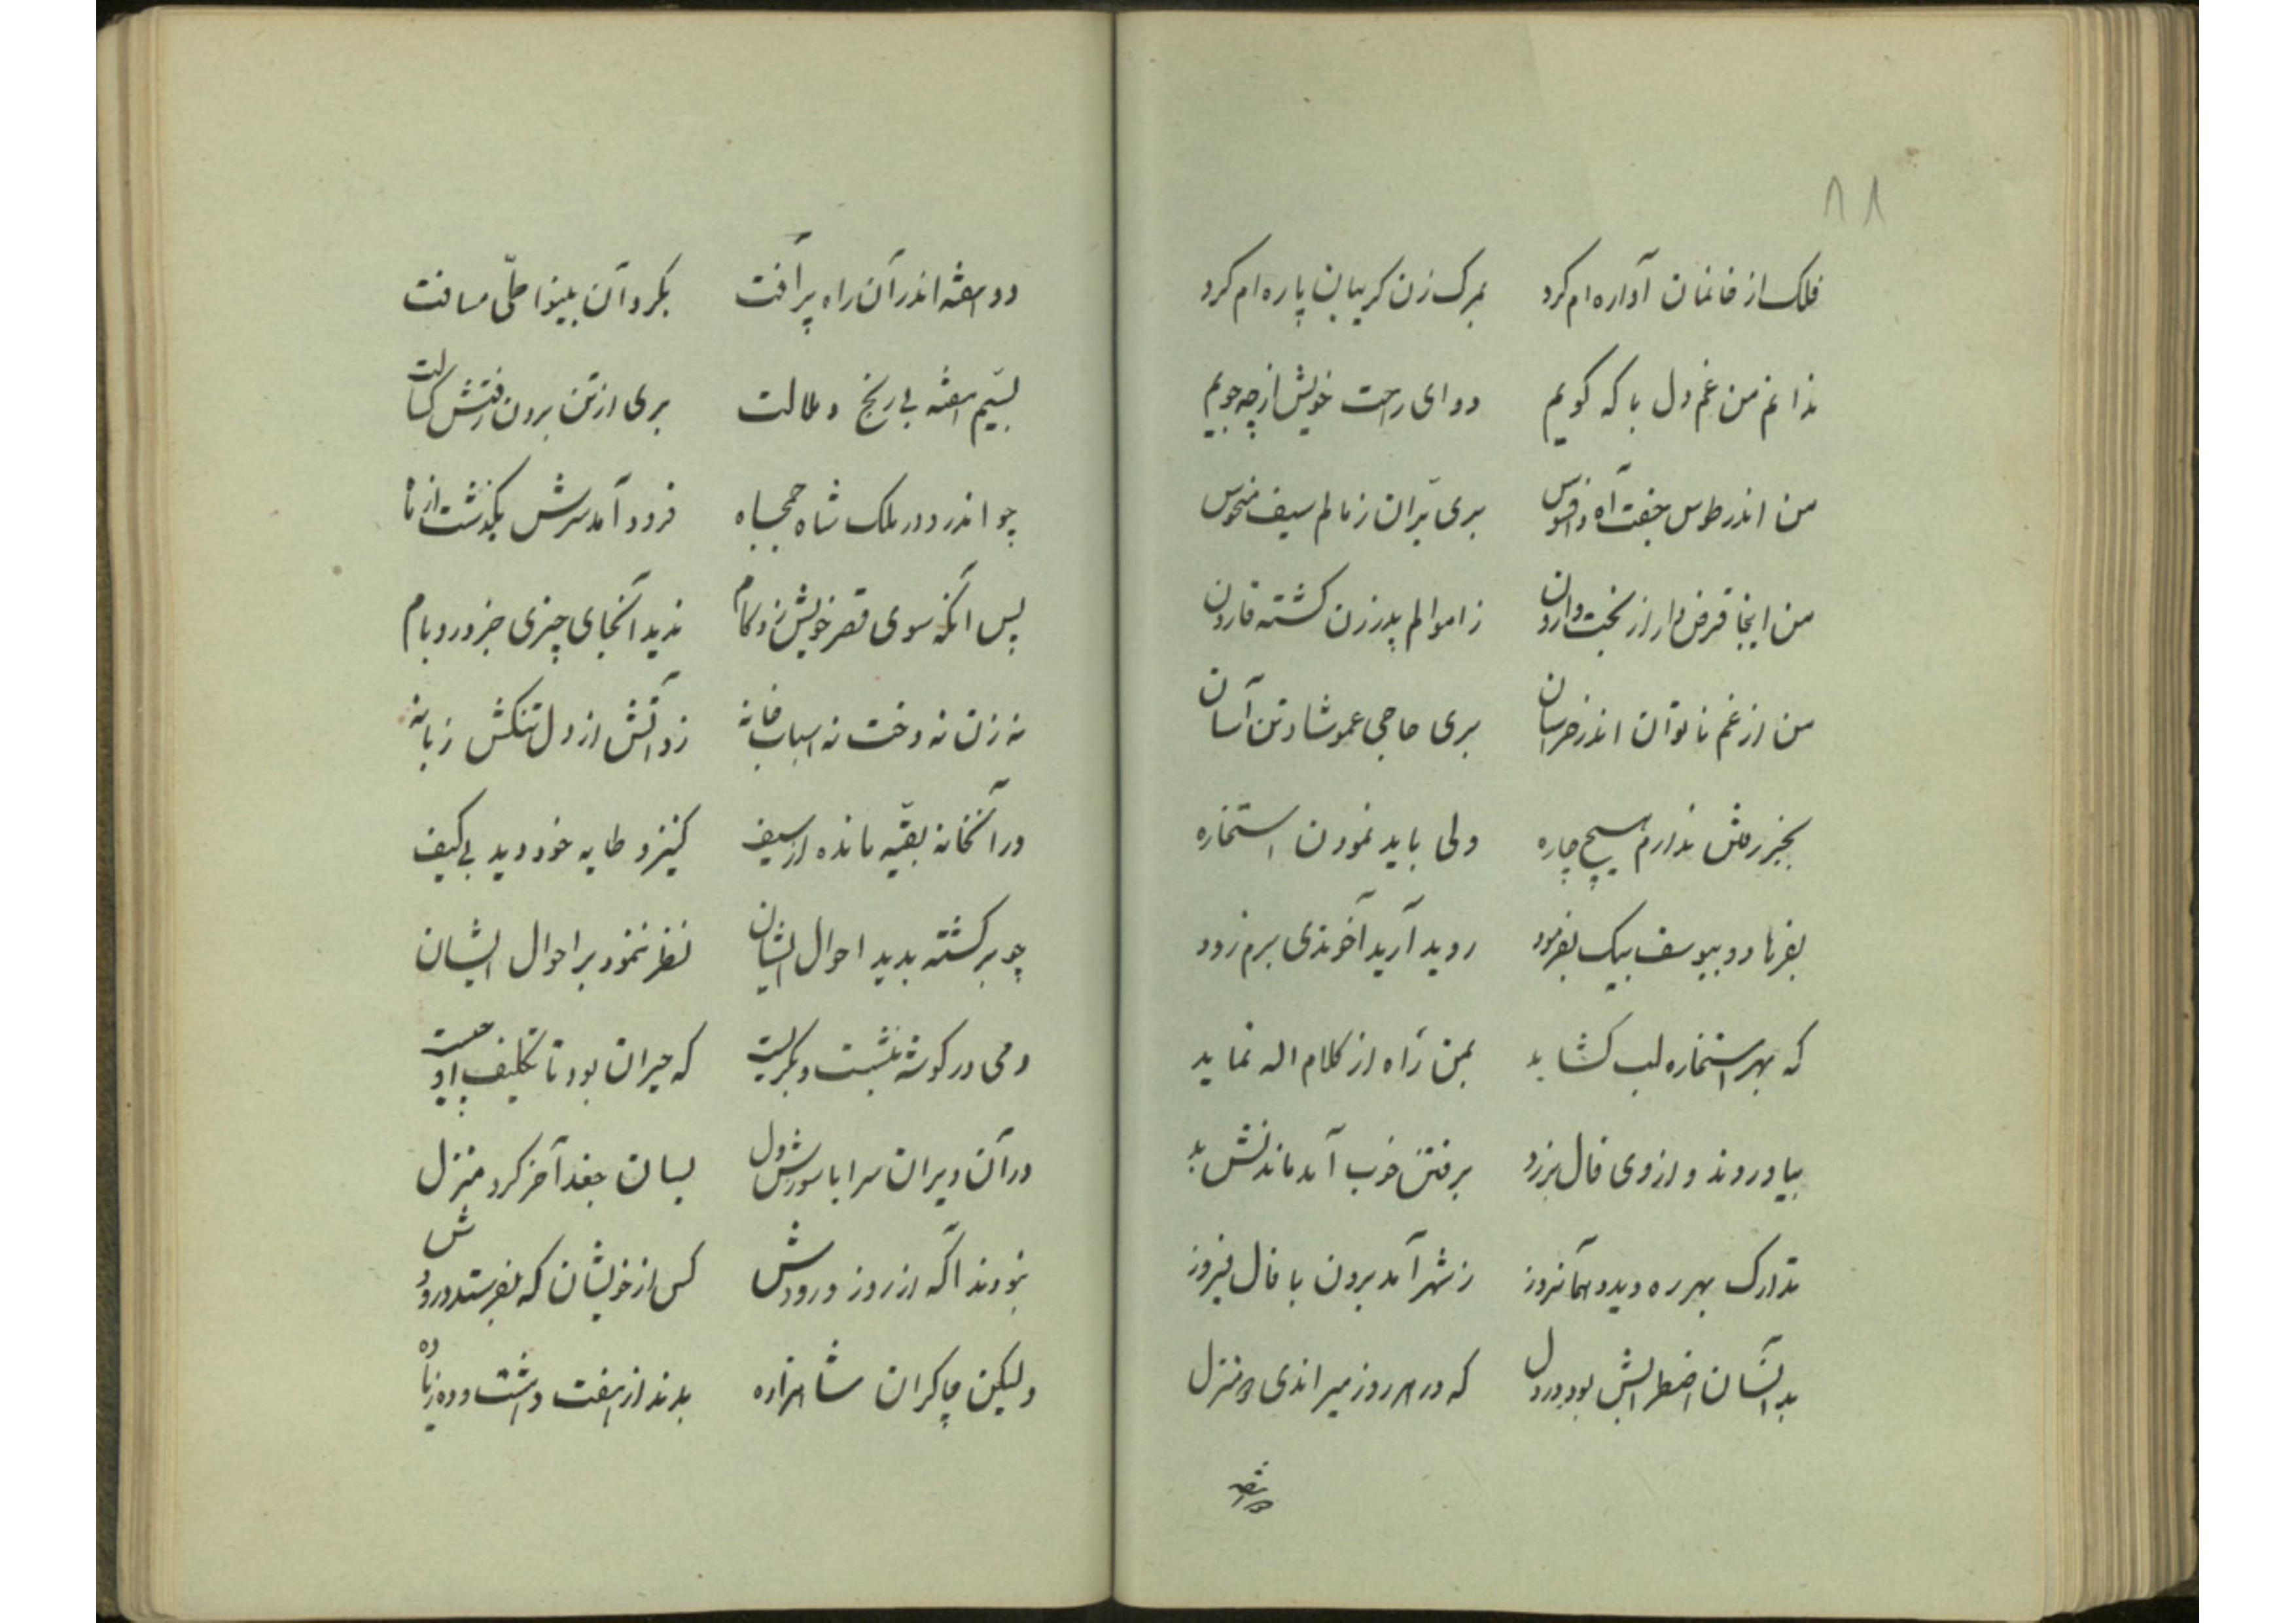 ۸۸
فلک از خانمان آواره ام کرد بمرک زن کریبان پاره ام کرد
ندانم من غم دل با که کویم دوای راحت خویش از چه جویم
من اندر طوس جفت آه و افسوس بری بران ز مالم سیف منحوس
من اینجا قرض دار از بخت وارون ز اموالم پدر زن کشته قارون
من از غم ناتوان اندر خراسان بری حاجی عمو شاد و تن آسان
بجز رفتن ندارم هیچ چاره ولی باید نمودن استخاره
بفرهاد و بیوسف بیک بفرمود روید آرید آخوندی برم زود
که بهر استخاره لب کشاید بمن راه از کلام اله نماید
بیاوردند و از وی فال بر زد برفتن خوب آمد ماندنش بد
تدارک بهر ره دید و همانروز ز شهر آمد برون با فال فیروز
بدانسان اضطرابش بود در دل که در هر روز میراندی دو منزل
دو هفته اندر آن راه پر آفت بکرد آن بینوا طی مسافت
بسیم هفته بی رنج و ملالت بری از تن برون رفتش کسالت
چو اندر دور ملک شاه جمجاه فرود آمد سرش بکذشت از
پس آنکه سوی قصر خویش زد کام ندید آنجای چیزی جز در و بام
نه زن نه دخت نه اسباب خانه زد آتش از دل تنکش زبانه
در آنخانه بقیه مانده از سیف کنیز و طایه خود دید بی کیف
چو برکشته بدید احوال ایشان نظر ننمود بر احوال ایشان
دمی در کوشه بنشست و بکریست که حیران بود تا تکلیف او چیست
در آن ویران سرا با سوزش دل بسان جغد آخر کرد منزل
نبودند آکه از روز ورودش کس از خویشان که بفرستد درودش
ولیکن چاکران شاهزاده بدند از هفت و هشت و ده زیاده